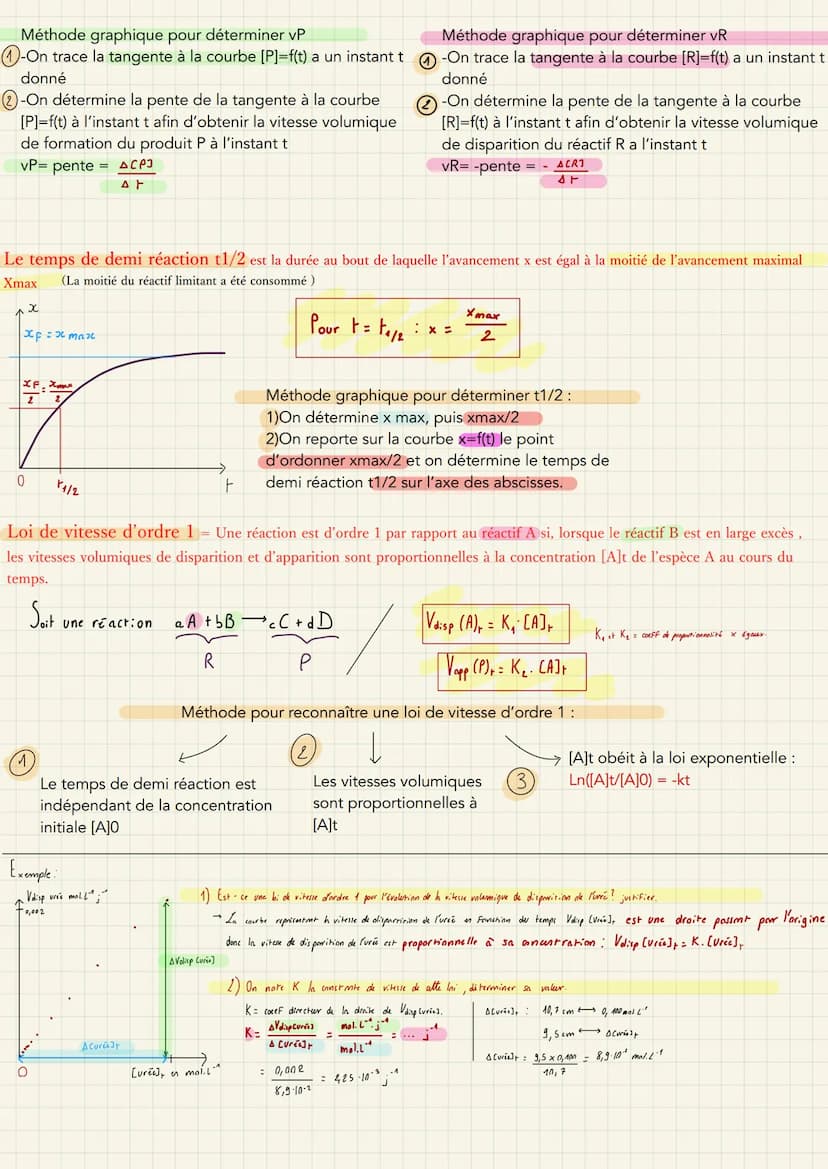 Méthode graphique pour déterminer vP
1 -On trace la tangente à la courbe [P]=f(t) a un instant t
donné
2 -On détermine la pente de la tangente à la courbe
[P]=f(t) à l'instant t afin d'obtenir la vitesse volumique
de formation du produit P à l'instant t
vP= pente = Δ[P] / Δt
Méthode graphique pour déterminer vR
1 -On trace la tangente à la courbe [R]=f(t) a un instant t
donné
2 -On détermine la pente de la tangente à la courbe
[R]=f(t) à l'instant t afin d'obtenir la vitesse volumique
de disparition du réactif R a l'instant t
vR= -pente = - Δ[R] / Δt
Le temps de demi réaction t1/2 est la durée au bout de laquelle l'avancement x est égal à la moitié de l'avancement maximal
Xmax (La moitié du réactif limitant a été consommé )
x
xF = x max
xF/2 = xmax/2
0
t1/2
t
Pour t = t1/2 : x = xmax / 2
Méthode graphique pour déterminer t1/2 :
1)On détermine x max, puis xmax/2
2)On reporte sur la courbe x=f(t) le point
d'ordonner xmax/2 et on détermine le temps de
demi réaction t1/2 sur l'axe des abscisses.
Loi de vitesse d'ordre 1 = Une réaction est d'ordre 1 par rapport au réactif A si, lorsque le réactif B est en large excès ,
les vitesses volumiques de disparition et d'apparition sont proportionnelles à la concentration [A]t de l'espèce A au cours du
temps.
Soit une réaction aA + bB → cC + dD
R P
Vdisp (A)t = K1·[A]t
Vapp (P)t = K2·[A]t
K1 et K2 = coeff de proportionnalité
Méthode pour reconnaître une loi de vitesse d'ordre 1 :
1
Le temps de demi réaction est
indépendant de la concentration
initiale [A]0
2
Les vitesses volumiques
sont proportionnelles à
[A]t
3
[A]t obéit à la loi exponentielle :
Ln([A]t/[A]0) = -kt
Exemple :
Vdisp urée mol.L⁻¹.j⁻¹
0,002
ΔVdisp [urée]
Δ[urée]t
0
[urée]t en mol.L⁻¹
1) Est-ce une loi de vitesse d'ordre 1 pour l'évolution de la vitesse volumique de disparition de l'urée? justifier.
→ La courbe représentant la vitesse de disparition de l'urée en fonction du temps Vdisp [urée]t est une droite passant par l'origine
donc la vitesse de disparition de l'urée est proportionnelle à sa concentration : Vdisp [urée]t = K.[urée]t
2) On note K la constante de vitesse de cette loi, déterminer sa valeur.
K = coeff directeur de la droite de Vdisp [urée]t
K = ΔVdisp[urée] / Δ[urée]t = mol.L⁻¹.j⁻¹ / mol.L⁻¹ = ... j⁻¹
= 0,002 / 8,9·10⁻² = 2,25·10⁻³ j⁻¹
Δ[urée]t : 10,7 cm ↔ 0,100 mol.L⁻¹
9,5 cm ↔ Δ[urée]t
Δ[urée]t = 9,5 x 0,100 / 10,7 = 8,9·10⁻² mol.L⁻¹